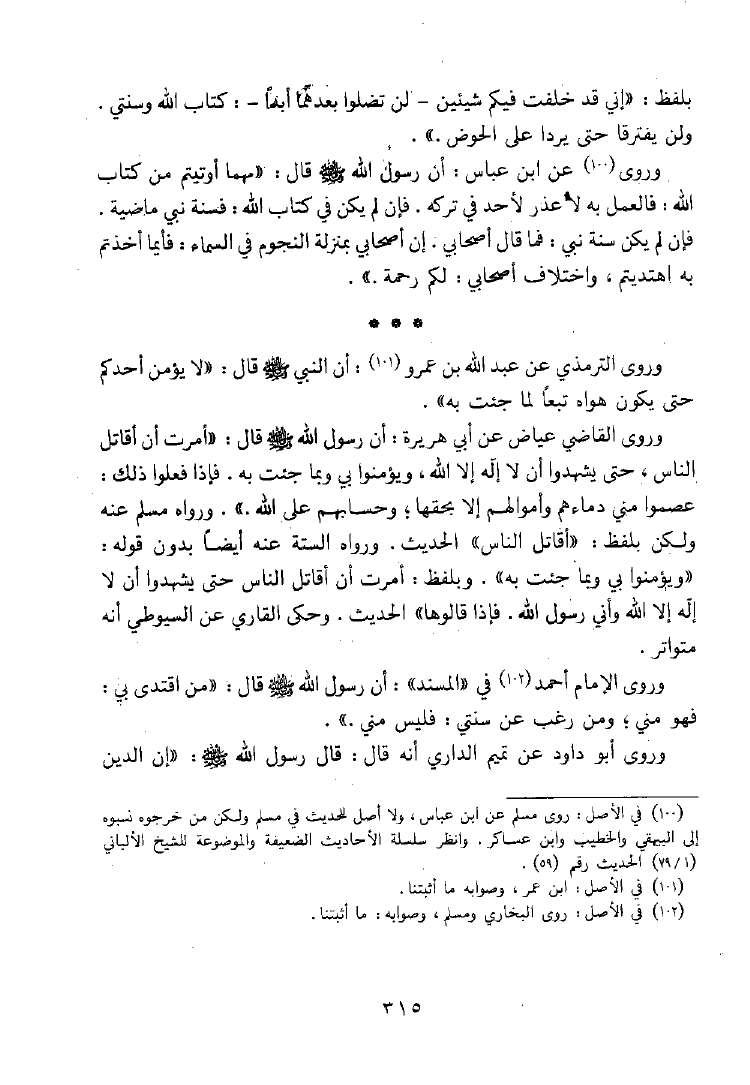 بلفظ : «إني قد خلفت فيكم شيئين - لن تضلوا بعدهما أبداً - : كتاب الله وسنتي .
ولن يفترقا حتى يردا على الحوض .» .
وروى (١٠٠) عن ابن عباس : أن رسول الله ﷺ قال : «مهما أوتيتم من كتاب
الله : فالعمل به لا عذر لأحد في تركه . فإن لم يكن في كتاب الله : فسنة نبي ماضية .
فإن لم يكن سنة نبي : فما قال أصحابي . إن أصحابي بمنزلة النجوم في السماء : فأيما أخذتم
به اهتديتم ، واختلاف أصحابي : لكم رحمة .» .
* * *
وروى الترمذي عن عبد الله بن عمرو (١٠١) : أن النبي ﷺ قال : «لا يؤمن أحدكم
حتى يكون هواه تبعاً لما جئت به» .
وروى القاضي عياض عن أبي هريرة : أن رسول الله ﷺ قال : «أمرت أن أقاتل
الناس ، حتى يشهدوا أن لا إله إلا الله ، ويؤمنوا بي وبما جئت به . فإذا فعلوا ذلك :
عصموا مني دماءهم وأموالهم إلا بحقها ؛ وحسابهم على الله .» . ورواه مسلم عنه
ولكن بلفظ : «أقاتل الناس» الحديث . ورواه الستة عنه أيضاً بدون قوله :
«ويؤمنوا بي وبما جئت به» . وبلفظ : أمرت أن أقاتل الناس حتى يشهدوا أن لا
إله إلا الله وأني رسول الله . فإذا قالوها» الحديث . وحكى القاري عن السيوطي أنه
متواتر .
وروى الإمام أحمد (١٠٢) في «المسند» : أن رسول الله ﷺ قال : «من اقتدى بي :
فهو مني ؛ ومن رغب عن سنتي : فليس مني .» .
وروى أبو داود عن تميم الداري أنه قال : قال رسول الله ﷺ : «إن الدين
(١٠٠) في الأصل : روى مسلم عن ابن عباس ، ولا أصل للحديث في مسلم ولكن من خرجوه نسبوه
إلى البيهقي والخطيب وابن عساكر . وانظر سلسلة الأحاديث الضعيفة والموضوعة للشيخ الألباني
(٧٩/١) الحديث رقم (٥٩) .
(١٠١) في الأصل : ابن عمر ، وصوابه ما أثبتنا .
(١٠٢) في الأصل : روى البخاري ومسلم ، وصوابه : ما أثبتنا .
٣١٥